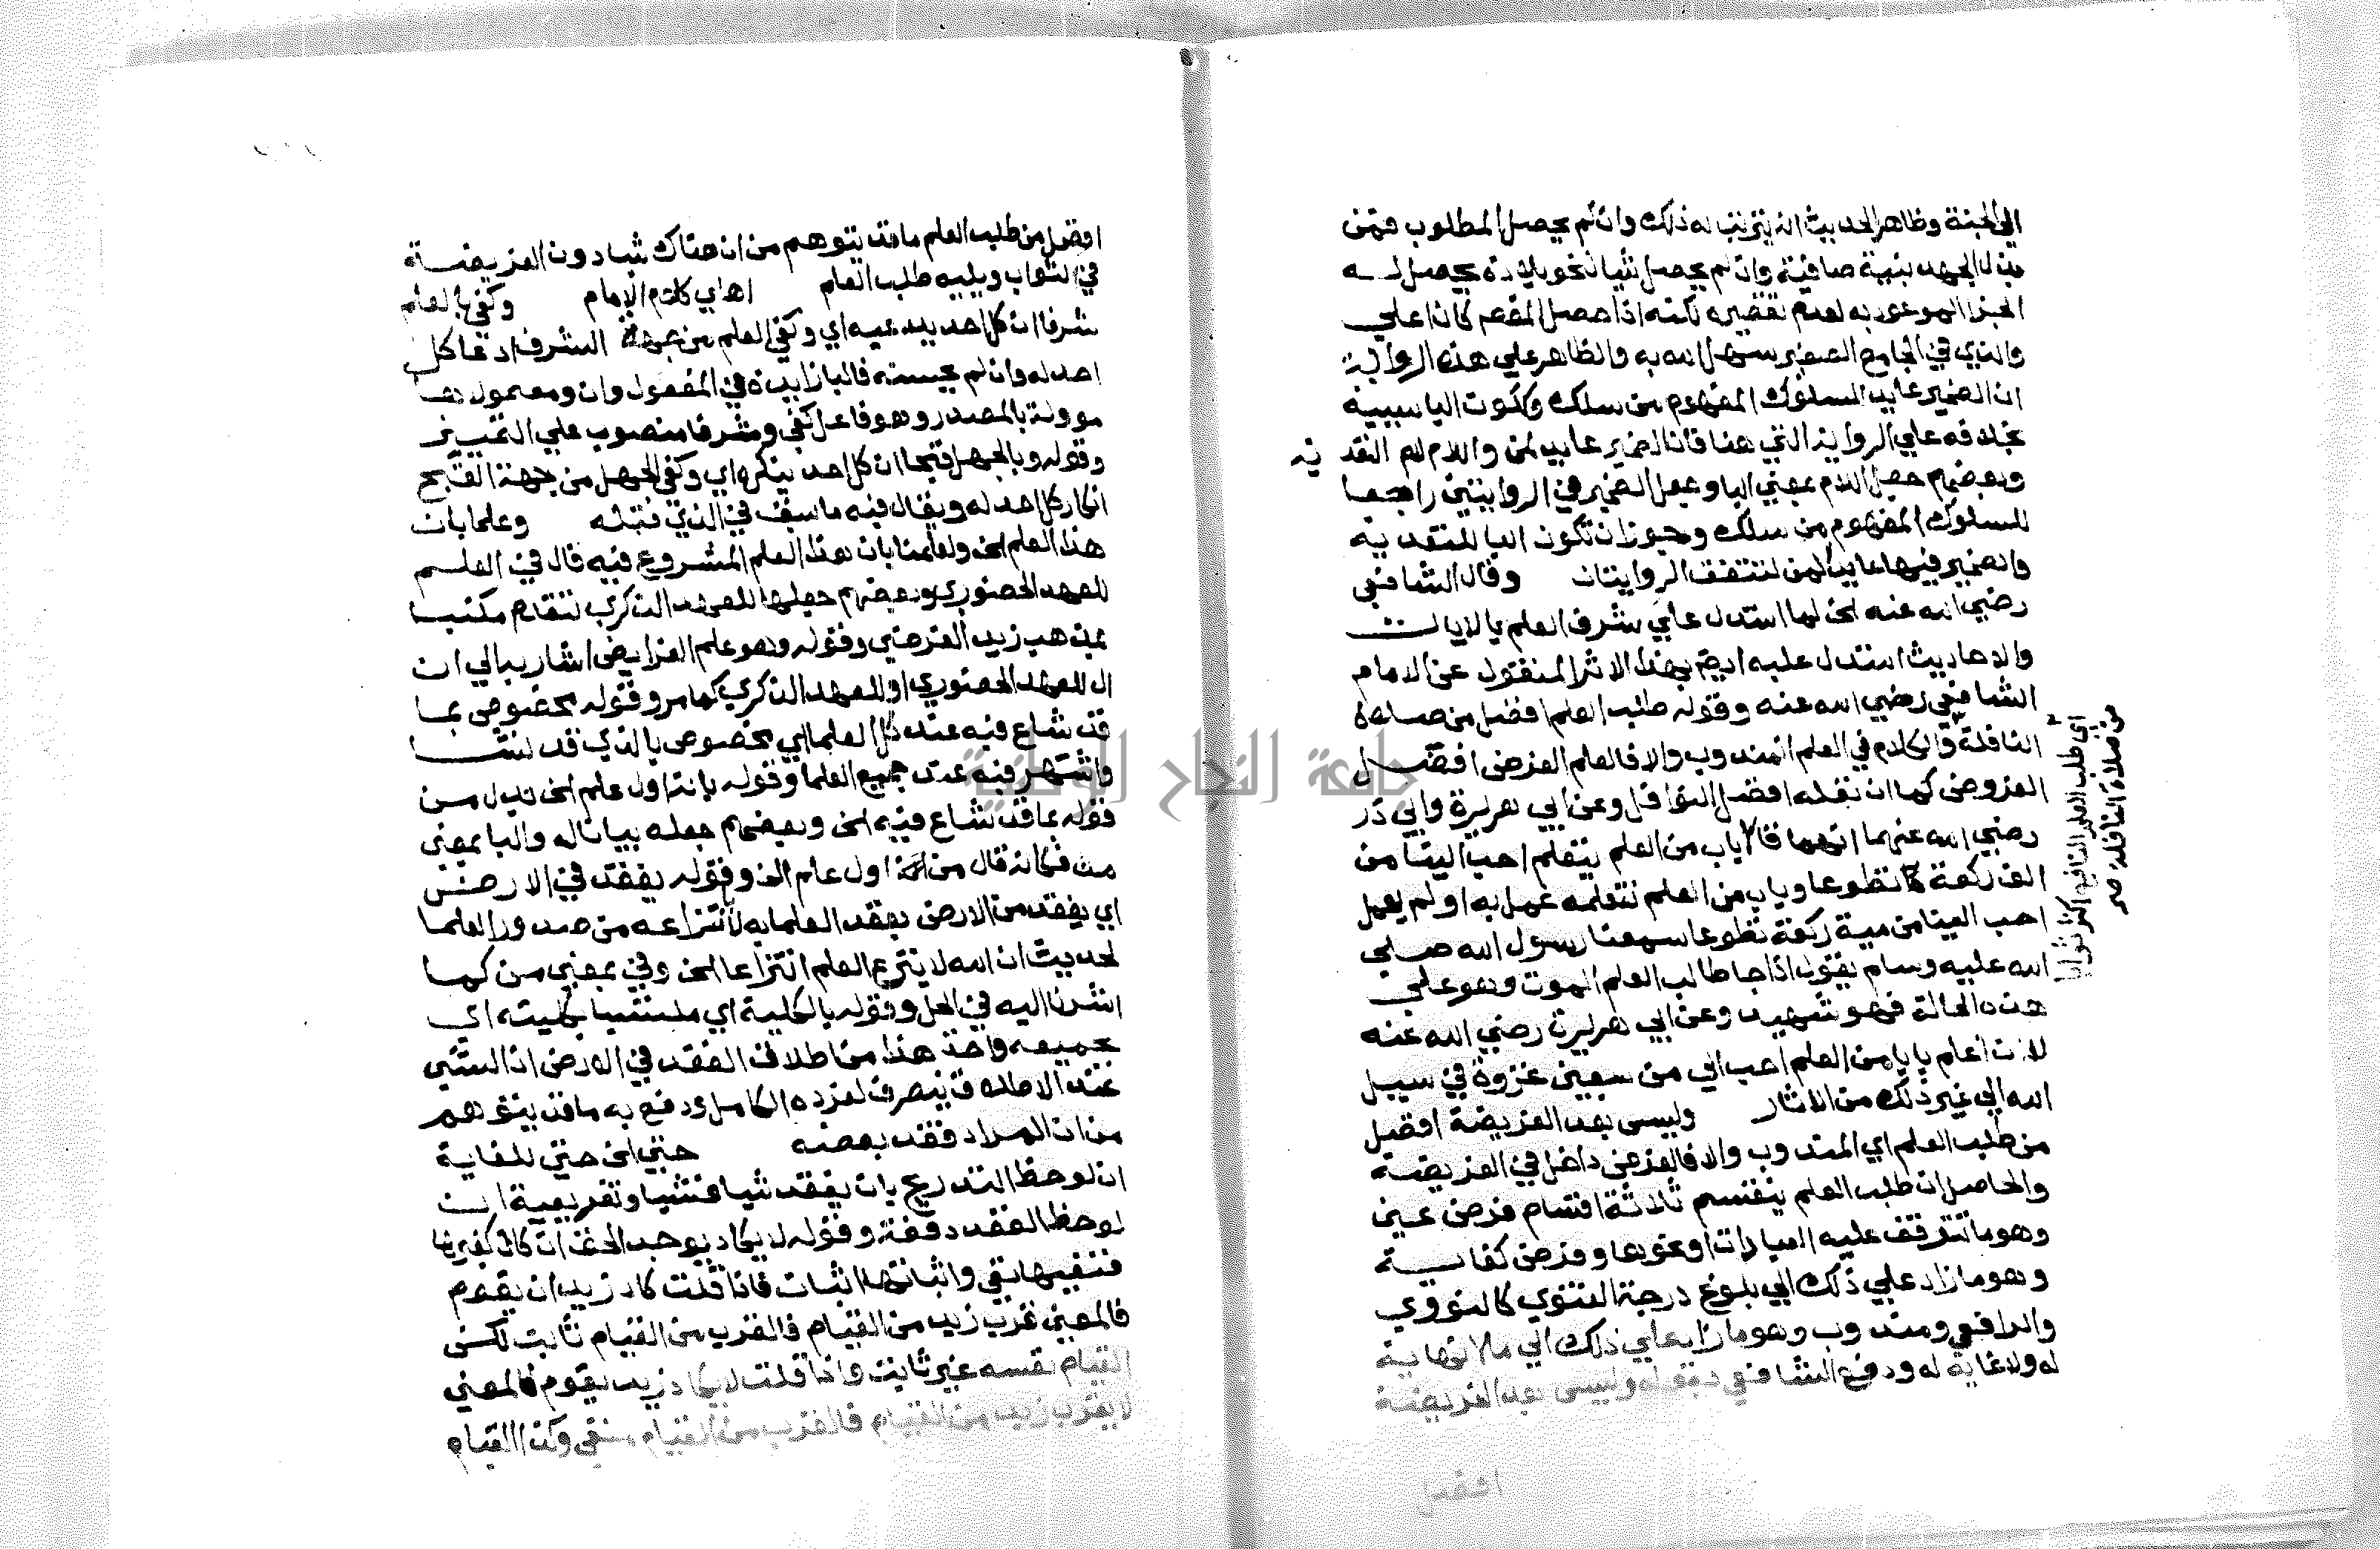 الي الجنة وظاهر الحديث انه يترتب له ذلك وان لم يحصل المطلوب فمن
بذل الجهد بنية صافية وان لم يحصل شيا لنحو بلادة يحصل لـه
الجزا الموعود به لعدم تقصيره لكنه اذا حصل المقصم كان اعلي
والذي في الجامع الصغير سهل الله به والظاهر علي هذه الرواية
ان الضمير عايد للسلوك المفهوم من سلك وتكون البا سببية
بخلافه علي الرواية التي هنا فان الضمير عايد لمن واللام لام التعدية
وبعضهم جعل اللام بمعني البا وجعل الضمير في الروايتين راجعا
للسلوك المفهوم من سلك وجوز ان تكون البا للتعدية
والضمير فيها عايد لمن لتتفق الروايتان وقال الشافعي
رضي الله عنه الخ لما استدل علي شرف العلم بالايات
والاحاديث استدل عليه ايضم بهذا الاثر المنقول عن الامام
الشافعي رضي الله عنه وقوله طلب العلم افضل من صلاة
النافلة والكلام في العلم المندوب والا فالعلم الفرض افضل
الفروض كما ان نفله افضل النوافل وعن ابي هريرة وابي ذر
رضي الله عنهما انهما قالا باب من العلم يتعلم احب الينا من
الف ركعة تطوعا وباب من العلم نتعلمه عمل به اولم يعمل
احب الينا من مية ركعة تطوعا سمعنا رسول الله صلي
الله عليه وسلم يقول اذا جا طالب العلم الموت وهو علي
هذه الحالة فهو شهيد وعن ابي هريرة رضي الله عنه
لان اعلم بابا من العلم احب الي من سبعين غزوة في سبيل
الله الي غير ذلك من الاثار وليس بعد الفريضة افضل
من طلب العلم اي المندوب والا فالفرض داخل في الفريضة
والحاصل ان طلب العلم ينقسم ثلاثة اقسام فرض عين
وهو ما تتوقف عليه العبادات او نحوها وفرض كفاية
وهو ما زاد علي ذلك الي بلوغ درجة الفتوي كالنووي
والرافعي ومندوب وهو ما زاد علي ذلك الي ما لا نهاية
له ولا غاية له ودفع الشافعي بقوله وليس بعد الفريضة
افضل
اي طلب العلم النافع اكثر ثوابا
من صلاة النافلة
افضل من طلب العلم ما قد يتوهم من ان هناك شيا دون الفريضة
في الثواب ويليه طلب العلم اهـ اي كلام الامام وكفي بالعلم
شرفا ان كل احد يدعيه اي وكفي العلم من جهة الشرف ادعا كل
احد له وان لم يحسنه فالبا زايدة في المفعول وان ومعمولاها
موولة بالمصدر وهو فاعل كفي وشرفا منصوب علي التمييز
وقوله وبالجهل قبحا ان كل احد ينكره اي وكفي الجهل من جهة القبح
انكار كل احد له ويقال فيه ما سبق في الذي قبله وعلما بان
هذا العلم الخ ولعلمنا بان هذا العلم المشروع فيه فال في العلم
للعهد الحضوري وبعضهم جعلها للعهد الذكري لتقدم مكتبا
بمذهب زيد الفرضي وقوله وهو علم الفرايض اشار به الي ان
ال للعهد الحضوري او للعهد الذكري كما مر وقوله مخصوص بما
قد شاع فيه عند كل العلما اي مخصوص بالذي قد فشا
واشتهر فيه عند جميع العلما وقوله بانه اول علم الخ بدل من
قوله بما قد شاع فيه الخ وبعضهم جعله بيانا له والبا بمعني
من فكانه قال من انه اول علم الخ وقوله يفقد في الارض
اي يفقد من الارض بفقد العلما به لا بانتزاعه من صدور العلما
لحديث ان الله لا ينتزع العلم انتزاعا الخ وفي بمعني من كما
اشرنا اليه في الحل وقوله بالكلية اي ملتبسا بكليته اي
بجميعه واخذ هذا من اطلاق الفقد في الارض اذ الشي
عند الاطلاق ينصرف لفرده الكامل ودفع به ما قد يتوهم
من ان المراد فقد بعضه حتي الخ حتي للغاية
ان لوحظ التدريج بان يفقد شيا فشيا وتفريعية ان
لوحظ الفقد دفعة وقوله لا يكاد يوجد الخ ان كاد كغيرها
فنفيها نفي واثباتها اثبات فاذا قلت كاد زيد ان يقوم
فالمعني قرب زيد من القيام فالقرب من القيام ثابت لكن
القيام نفسه غير ثابت واذا قلت لا يكاد زيد يقوم فالمعني
لا يقرب زيد من القيام فالقرب من القيام منتفي وكذا القيام
جامعة النجاح الوطنية